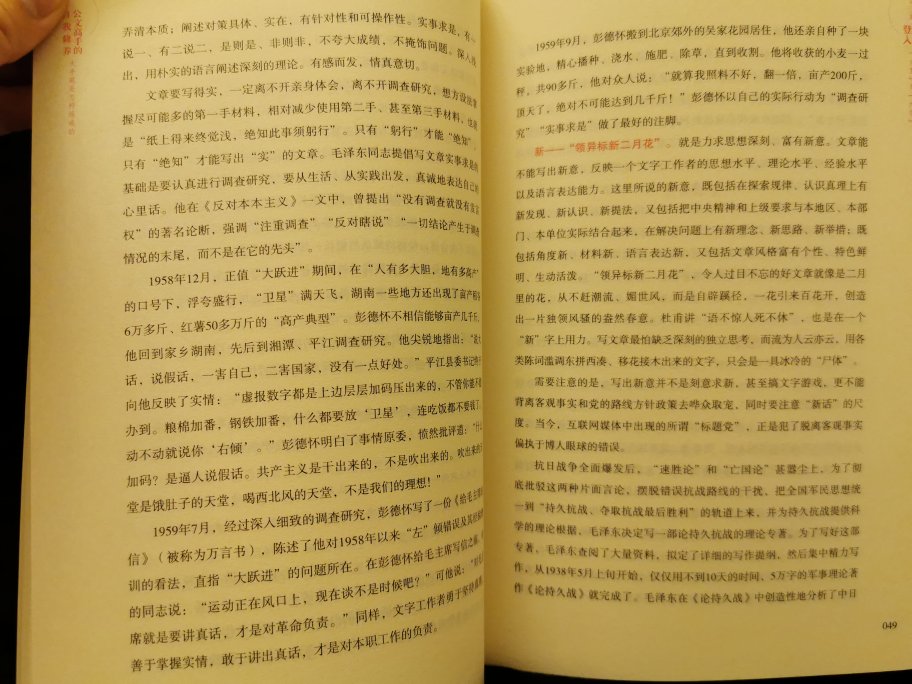 公文高手的
自我修养
弄清本质；阐述对策具体、实在，有针对性和可操作性。实事求是，有一
说一、有二说二，是则是、非则非，不夸大成绩，不掩饰问题。深入浅
出，用朴实的语言阐述深刻的理论。有感而发，情真意切。
文章要写得实，一定离不开亲身体会，离不开调查研究，想方设法掌
握尽可能多的第一手材料，相对减少使用第二手、甚至第三手材料，也就
是“纸上得来终觉浅，绝知此事须躬行”。只有“躬行”才能“绝知”，
只有“绝知”才能写出“实”的文章。毛泽东同志提倡写文章实事求是的
基础是要认真进行调查研究，要从生活、从实践出发，真诚地表达自己的
心里话。他在《反对本本主义》一文中，曾提出“没有调查就没有发言
权”的著名论断，强调“注重调查”“反对瞎说”“一切结论产生于调查
情况的末尾，而不是在它的先头”。
1958年12月，正值“大跃进”期间，在“人有多大胆，地有多高产”
的口号下，浮夸盛行，“卫星”满天飞，湖南一些地方还出现了亩产稻谷
6万多斤、红薯50多万斤的“高产典型”。彭德怀不相信能够亩产几千斤，
他回到家乡湖南，先后到湘潭、平江调查研究。他尖锐地指出：“说大
话，说假话，一害自己，二害国家，没有一点好处。”平江县委书记
向他反映了实情：“虚报数字都是上边层层加码压出来的，不管你能不能
办到。粮棉加番，钢铁加番，什么都要放‘卫星’，连吃饭都不要钱了。
动不动就说你‘右倾’。”彭德怀明白了事情原委，愤然批评道：“什么
加码？是逼人说假话。共产主义是干出来的，不是吹出来的。吹出来的天
堂是饿肚子的天堂，喝西北风的天堂，不是我们的理想！”
1959年7月，经过深入细致的调查研究，彭德怀写了一份《给毛主席的
信》（被称为万言书），陈述了他对1958年以来“左”倾错误及其经验教
训的看法，直指“大跃进”的问题所在。在彭德怀给毛主席写信之前，有
的同志说：“运动正在风口上，现在谈不是时候吧？”可他说：“对毛主
席就是要讲真话，才是对革命负责。”同样，文字工作者勇于坚持真理，
善于掌握实情，敢于讲出真话，才是对本职工作的负责。
1959年9月，彭德怀搬到北京郊外的吴家花园居住，他还亲自种了一块
实验地，精心播种、浇水、施肥、除草，直到收割。他将收获的小麦一过
秤，共90多斤，他对众人说：“就算我照料不好，翻一倍，亩产200斤，
顶天了，绝对不可能达到几千斤！”彭德怀以自己的实际行动为“调查研
究”“实事求是”做了最好的注脚。
新——“领异标新二月花”。就是力求思想深刻、富有新意。文章能
不能写出新意，反映一个文字工作者的思想水平、理论水平、经验水平
以及语言表达能力。这里所说的新意，既包括在探索规律、认识真理上有
新发现、新认识、新提法，又包括把中央精神和上级要求与本地区、本部
门、本单位实际结合起来，在解决问题上有新理念、新思路、新举措；既
包括角度新、材料新、语言表达新，又包括文章风格富有个性、特色鲜
明、生动活泼。“领异标新二月花”，令人过目不忘的好文章就像是二月
里的花，从不赶潮流、媚世风，而是自辟蹊径，一花引来百花开，创造
出一片独领风骚的盎然春意。杜甫讲“语不惊人死不休”，也是在一个
“新”字上用力。写文章最怕缺乏深刻的独立思考，而流为人云亦云，用各
类陈词滥调东拼西凑、移花接木出来的文字，只会是一具冰冷的“尸体”。
需要注意的是，写出新意并不是刻意求新，甚至搞文字游戏，更不能
背离客观事实和党的路线方针政策去哗众取宠，同时要注意“新话”的尺
度。当今，互联网媒体中出现的所谓“标题党”，正是犯了脱离客观事实
偏执于博人眼球的错误。
抗日战争全面爆发后，“速胜论”和“亡国论”甚嚣尘上，为了彻
底批驳这两种片面言论，摆脱错误抗战路线的干扰、把全国军民思想统
一到“持久抗战、争取抗战最后胜利”的轨道上来，并为持久抗战提供科
学的理论根据，毛泽东决定写一部论持久抗战的理论专著。为了写好这部
专著，毛泽东查阅了大量资料，拟定了详细的写作提纲，然后集中精力写
作，从1938年5月上旬开始，仅仅用不到10天的时间、5万字的军事理论著
作《论持久战》就完成了。毛泽东在《论持久战》中创造性地分析了中日
049